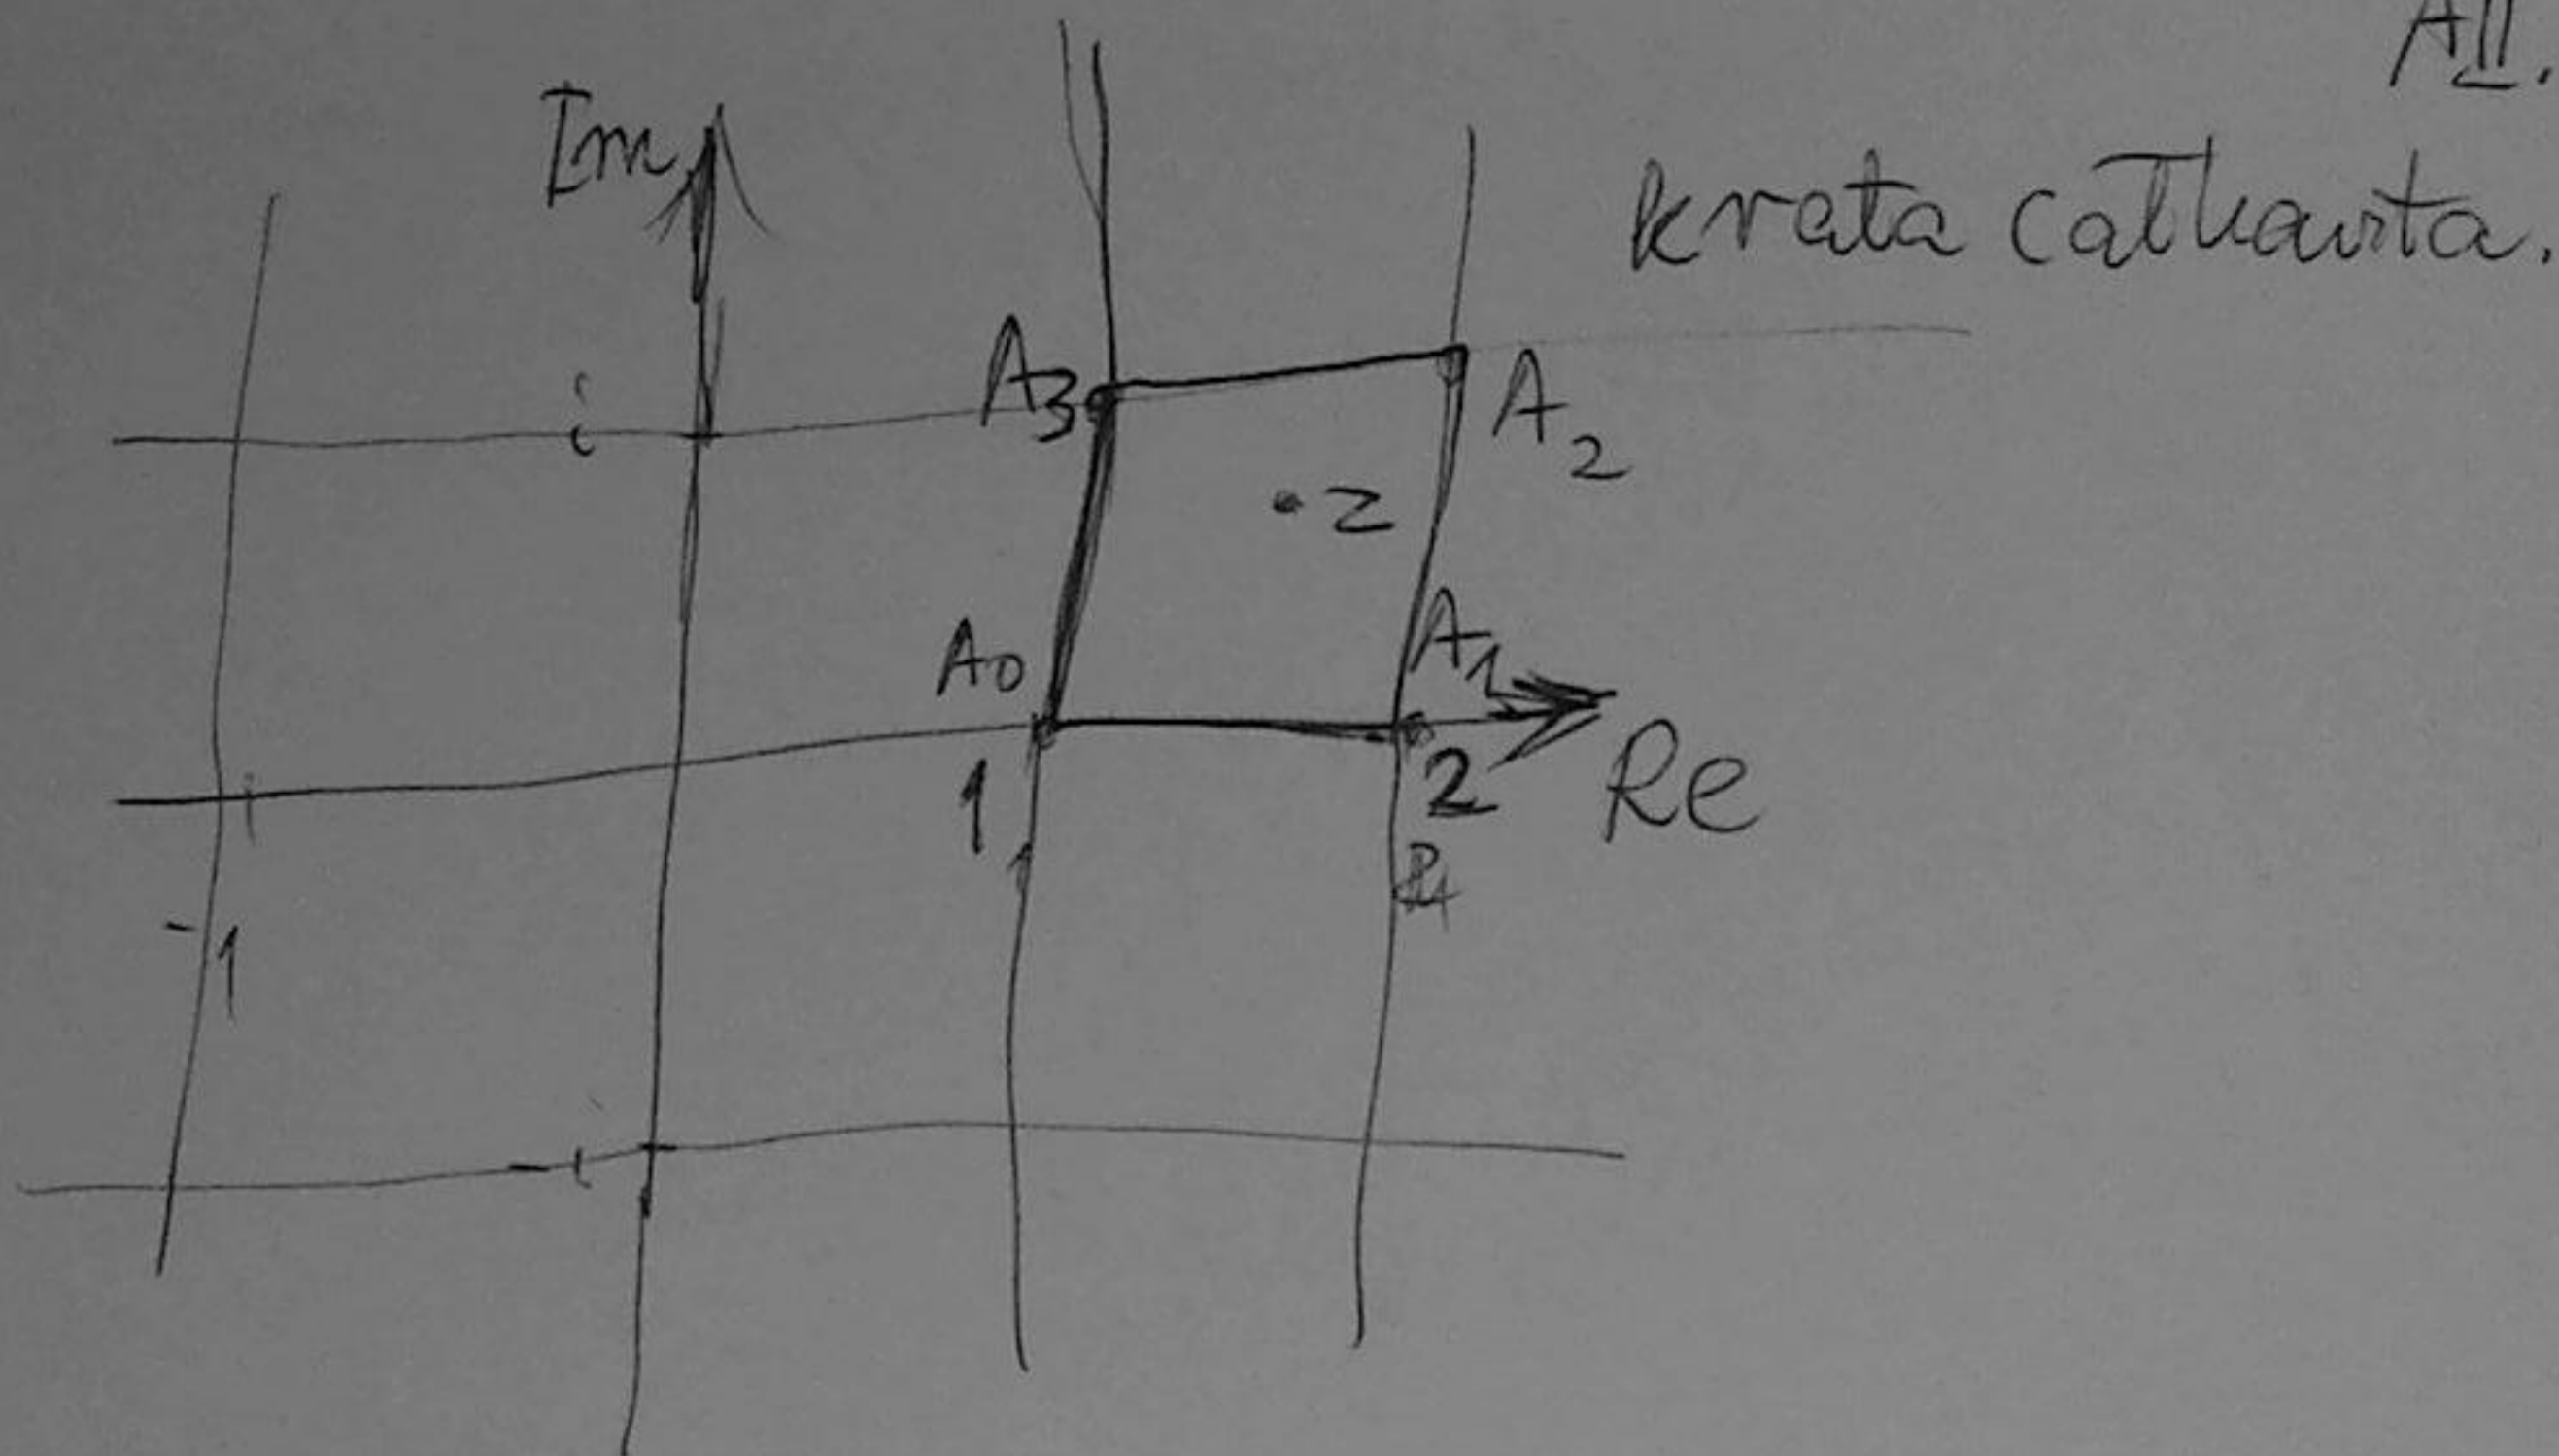 AII.
Im
krata całkowita.
i
A3
A2
• z
A0
A1
1
2
Re
1
-1
-i